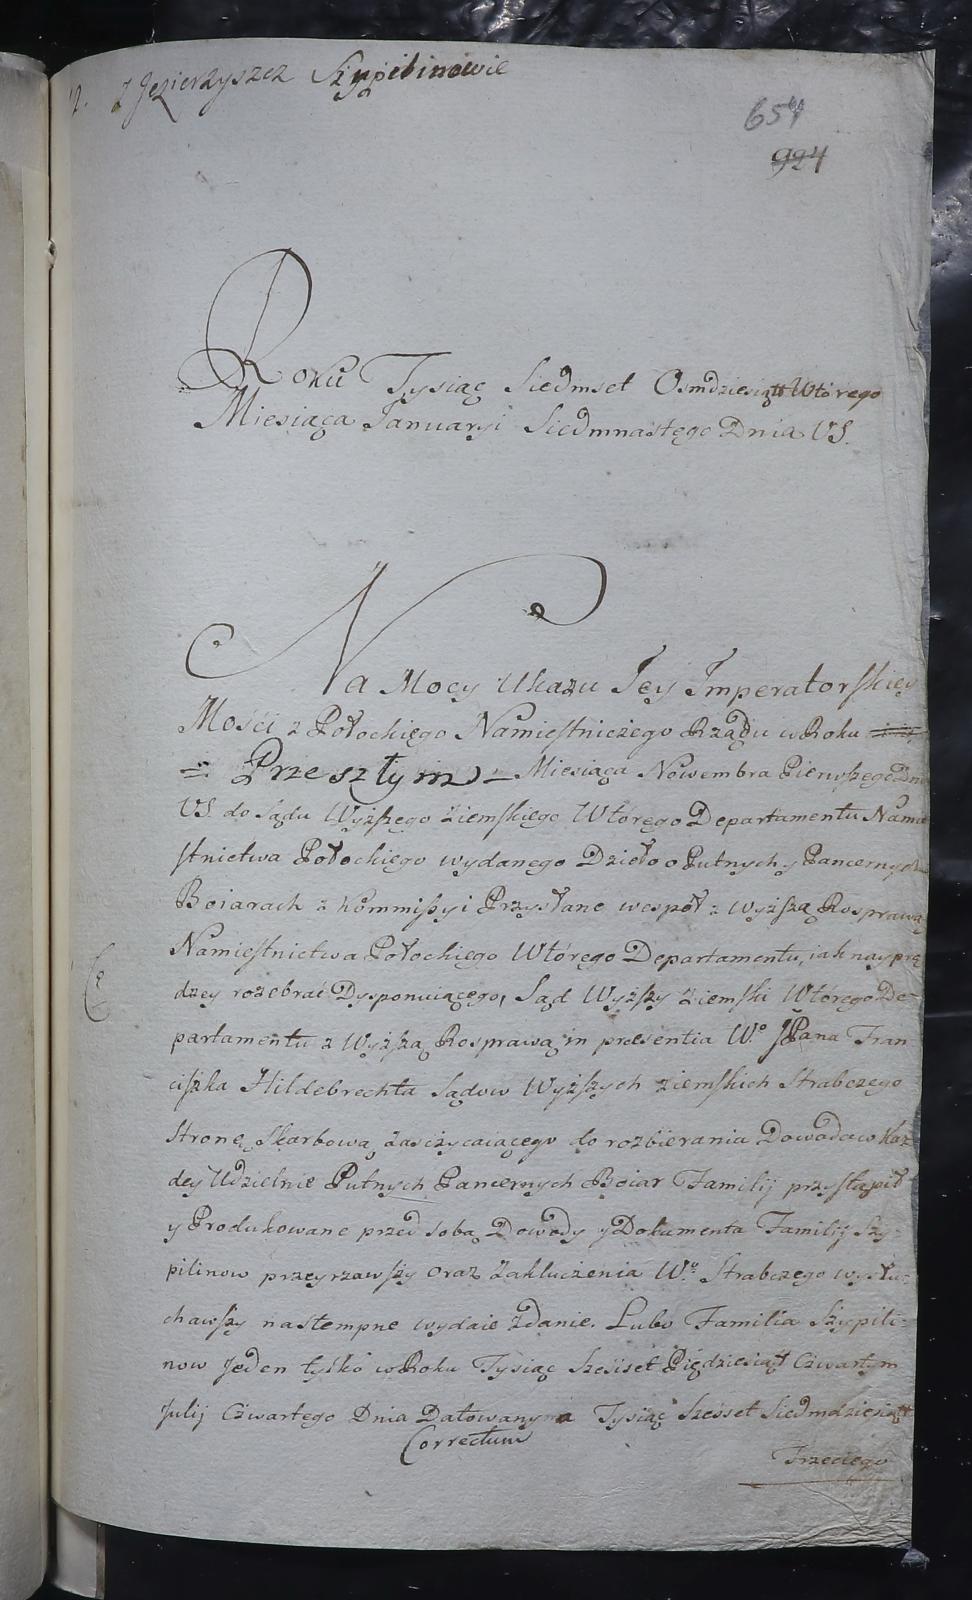 12. z Jezierzyszcz Szypilinowie
654
924
Roku Tysiąc Siedmset Osmdziesiątt Wtórego
Miesiąca Januaryi Siedmnastego Dnia VS.
Na Mocy Ukazu Jey Imperatorskiey
Mości z Połockiego Namiestniczego Rządu w Roku
Przeszłym Miesiąca Nowembra Pierwszego Dnia
VS do Sądu Wyższego Ziemskiego Wtórego Departamentu Namie
stnictwa Połockiego wydanego Dzieło o Putnych y Pancernych
Boiarach z Kommissyi Przysłane wespół z Wyższą Rosprawą
Namiestnictwa Połockiego Wtórego Departamentu, iak nayprę
dzey rozebrać Dysponuiącego, Sąd Wyższy Ziemski Wtórego De-
partamentu z Wyższą Rosprawą in praesentia Wo JPana Fran
ciszka Hildebrechta Sądow Wyższych Ziemskich Strabczego
Stronę Skarbową Zasczycaiącego do rozbierania Dowodow Każ
dey Udzielnie Putnych Pancernych Boiar Familij przystąpił
y Produkowane przed sobą Dowody y Dokumenta Familij Szy-
pilinow przeyrzawszy oraz Zakluczenia Wo Strabczego wysłu-
chawszy nastempne wydaie Zdanie. Lubo Familia Szypili-
now Jeden tylko w Roku Tysiąc Szesset Pięddziesiąt Czwartym
Julij Czwartego Dnia Datowany a Tysiąc Szesset Siedmdziesiątt
Correctum
Trzeciego